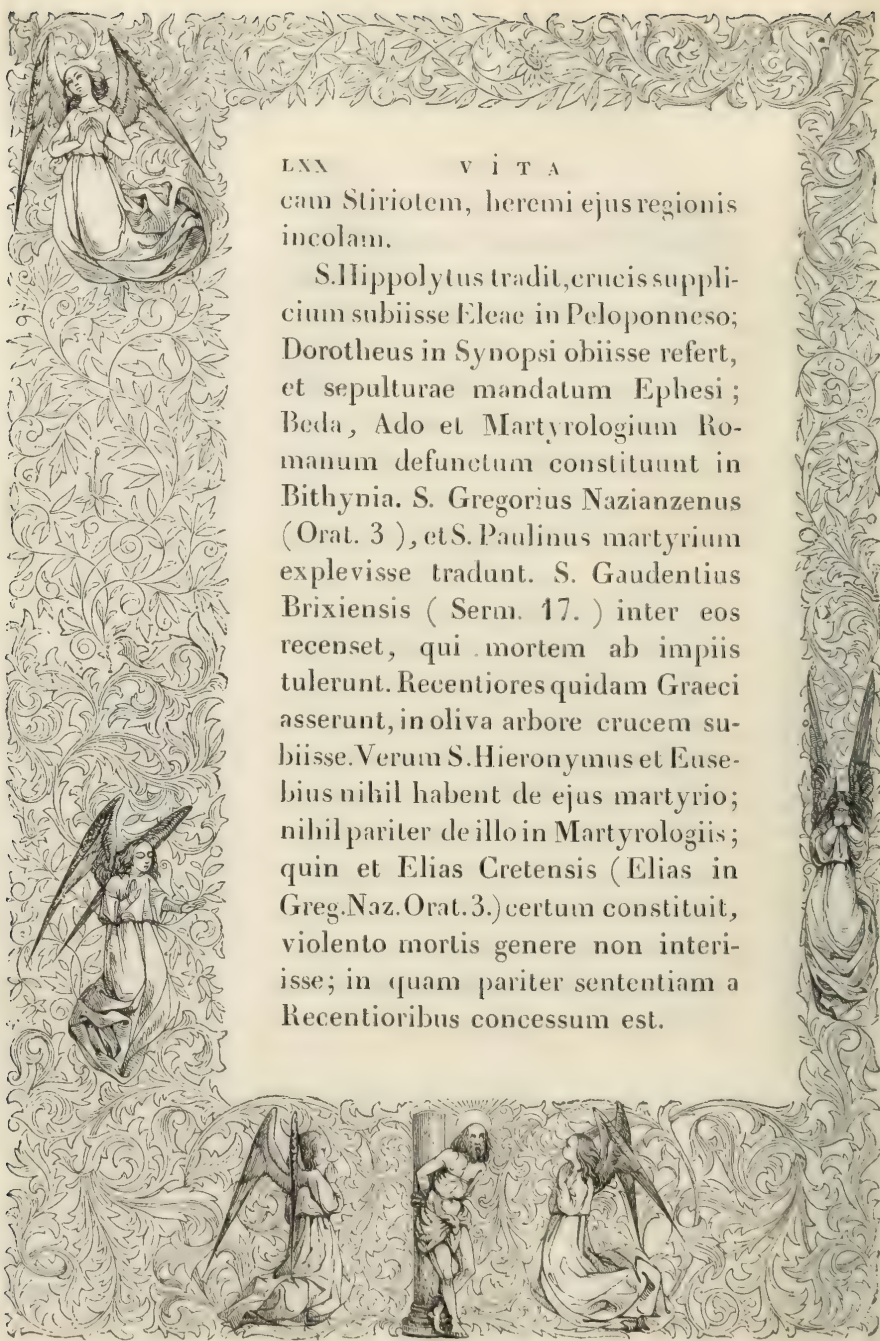 LXX VITA
cam Stiriotem, heremi ejus regionis
incolam.
S. Hippolytus tradit, crucis suppli-
cium subiisse Eleae in Peloponneso;
Dorotheus in Synopsi obiisse refert,
et sepulturae mandatum Ephesi ;
Beda, Ado et Martyrologium Ro-
manum defunctum constituunt in
Bithynia. S. Gregorius Nazianzenus
(Orat. 3 ), et S. Paulinus martyrium
explevisse tradunt. S. Gaudentius
Brixiensis ( Serm. 17. ) inter eos
recenset, qui mortem ab impiis
tulerunt. Recentiores quidam Graeci
asserunt, in oliva arbore crucem su-
biisse. Verum S. Hieronymus et Euse-
bius nihil habent de ejus martyrio;
nihil pariter de illo in Martyrologiis ;
quin et Elias Cretensis (Elias in
Greg. Naz. Orat. 3.) certum constituit,
violento mortis genere non interi-
isse; in quam pariter sententiam a
Recentioribus concessum est.